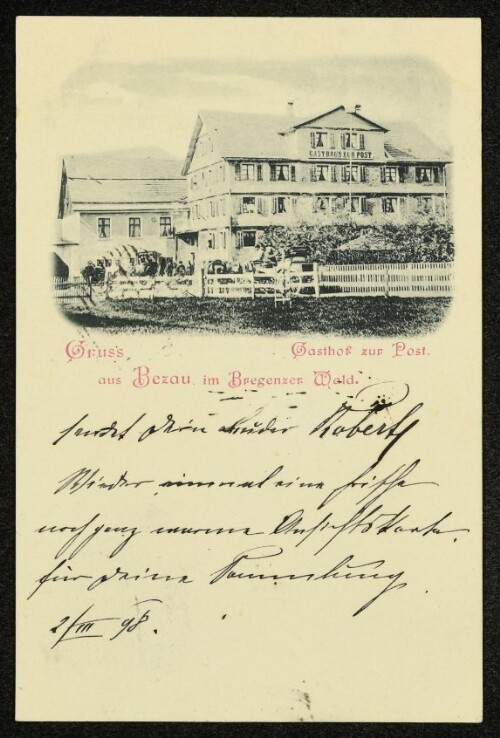 GASTHAUS ZUR POST
Gruss Gasthof zur Post.
aus Bezau im Bregenzer Wald.
sendet dein Bruder Robert
Wieder einmal eine frische
noch ganz warme Ansichtskarte
für deine Sammlung.
2/III 98.